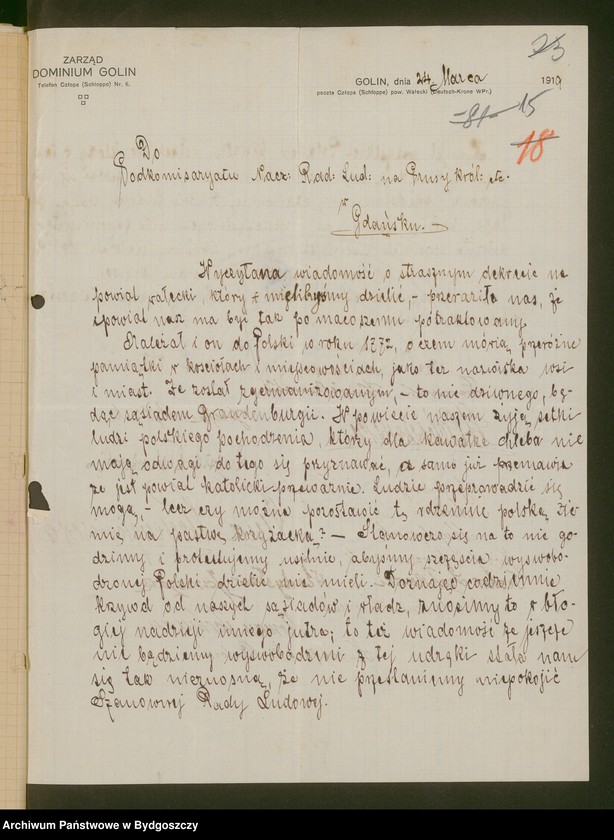 23
ZARZĄD
DOMINIUM GOLIN
Telefon Człopa (Schloppe) Nr. 6.
GOLIN, dnia 24. Marca 1919
poczta Człopa (Schloppe) pow. Wałecki (Deutsch-Krone WPr.)
15
18
Do
Podkomisaryatu Nacz: Rad: Lud: na Prusy Król: etc.
w
Gdańsku.-
Wyczytana wiadomość o strasznym dekrecie na
powiat wałecki, który mielibyśmy dzielić, - przeraziła nas, że
i powiat nasz ma być tak po macoszemu potraktowany.
Należał i on do Polski w roku 1772, o czem mówią przeróżne
pamiątki w kościołach i miejscowościach, jako też nazwiska wsi
i miast. Że został zgermanizowanym, - to nic dziwnego, bę-
dąc sąsiadem Brandenburgii. W powiecie naszem żyją setki
ludzi polskiego pochodzenia, którzy dla kawałka chleba nie
mają odwagi do tego się przyznawać, a samo już przemawia
że jest powiat katolicki przeważnie. Ludzie przeprowadzić się
mogą, - lecz czy można pozostawić tę rdzennie polską zie-
mię na pastwę krzyżacką? - Stanowczo się na to nie go-
dzimy i protestujemy usilnie, abyśmy szczęścia wyswobo-
dzonej Polski dzielić nie mieli. Doznając codziennie
krzywd od naszych sąsiadów i władz, znosimy to w bło-
giej nadzieji innego jutra; to też wiadomość że jeszcze
nie będziemy wyswobodzeni z tej udręki stała nam
się tak nieznośną, że nie przestaniemy niepokoić
Szanownej Rady Ludowej.
Archiwum Państwowe w Bydgoszczy